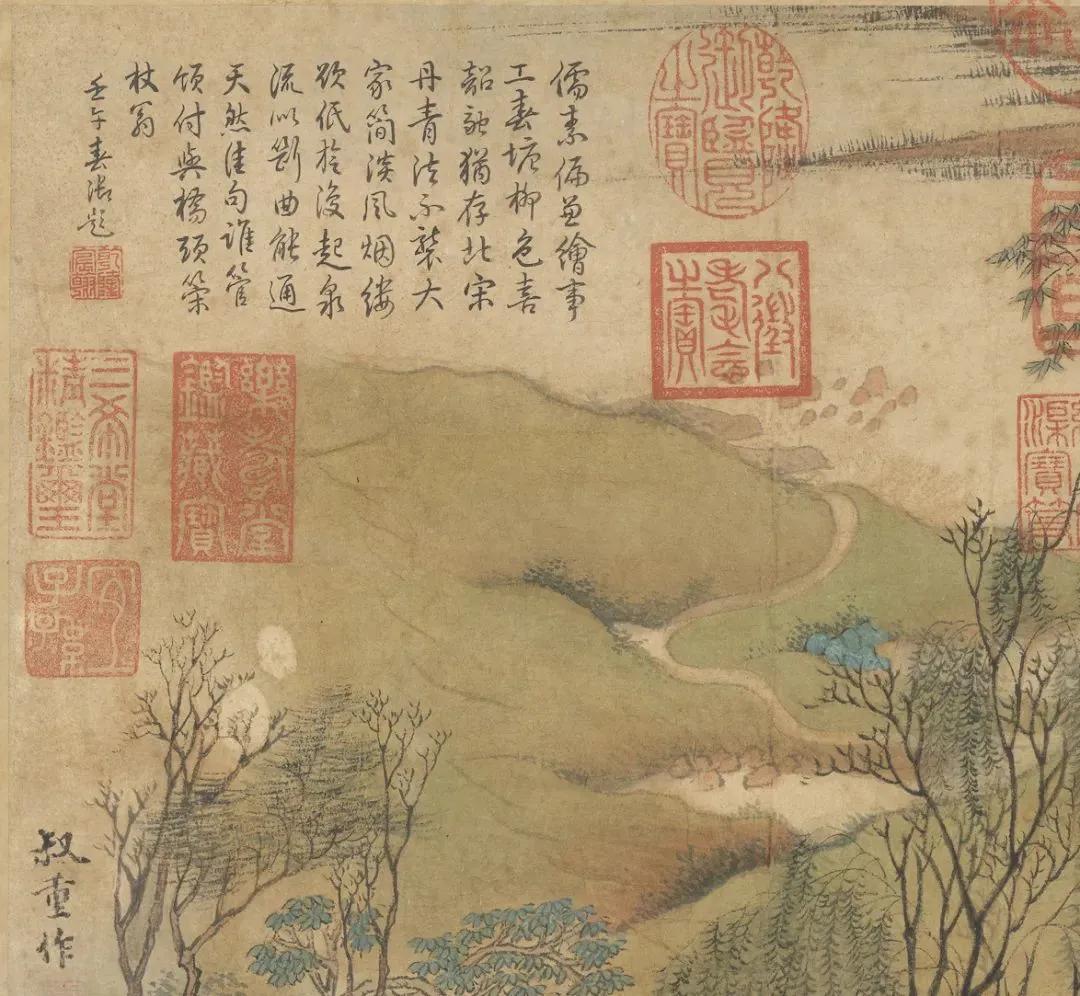 儒素偏兼繪事
工春塘柳色喜
韶融猶存北宋
丹青法不襲大
家簡淡風烟縷
欲低於復起泉
流似斷曲能通
天然佳句誰管
領付與橋頭策
杖翁
壬午春御題
乾隆宸翰
乾隆御覽之寶
八徵耄念之寶
樂壽堂鑑藏寶
三希堂精鑑璽
宜子孫
叔重作